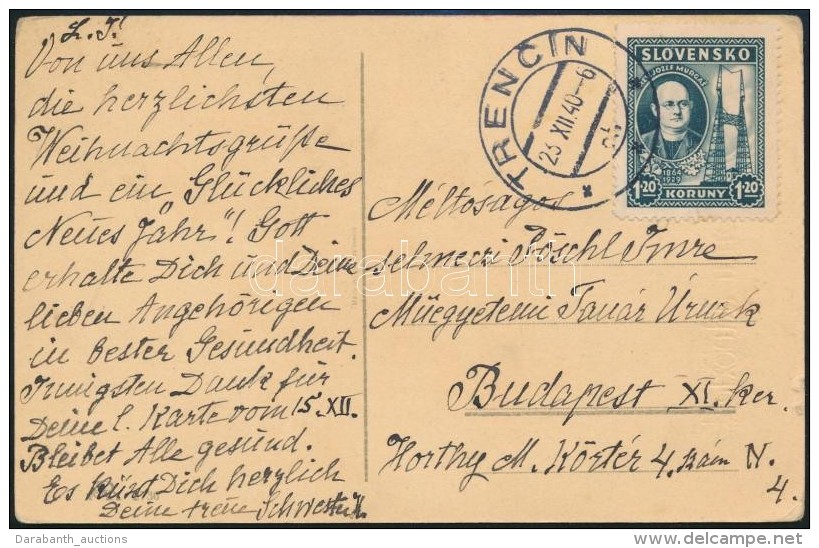 L. I!
Von uns Allen,
die herzlichsten
Weihnachtsgrüße
und ein „Glückliches
Neues Jahr"! Gott
erhalte Dich und Deine
lieben Angehörigen
in bester Gesundheit.
Innigsten Dank für
Deine l. Karte vom 15. XII.
Bleibet Alle gesund.
Es küsst Dich herzlich
Deine treue Schwester
TRENČÍN
23 XII. 40 - 6
SLOVENSKO
JOZEF MURGAŠ
1864
1929
1.20 KORUNY 1.20
Méltóságos
selmeczi Pöschl Imre
Müegyetemi Tanár Úrnak
Budapest XI. ker.
Horthy M. Körtér 4. szám N.
4.
darabanth
Darabanth_auctions
www.delcampe.net